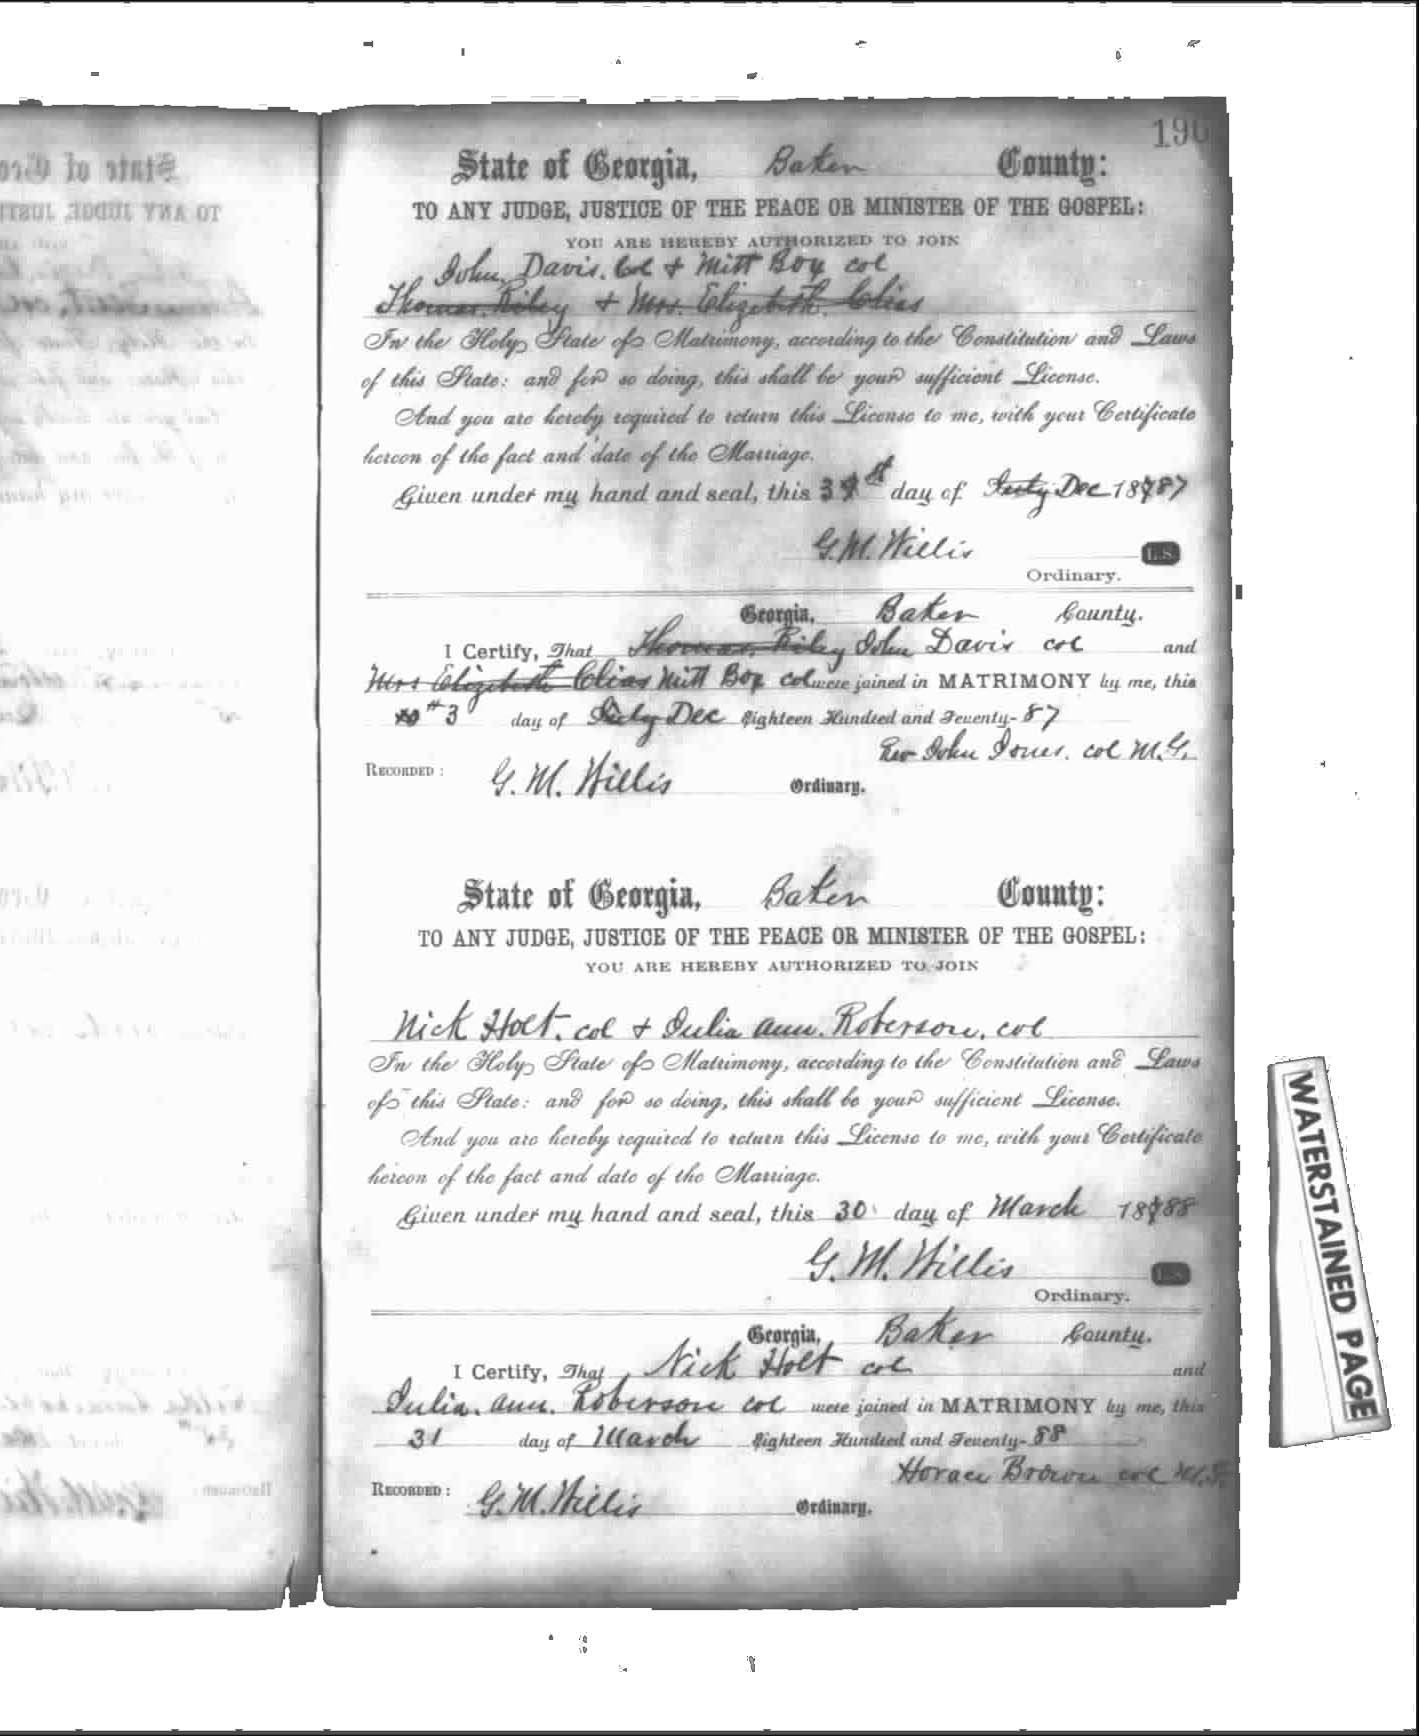 190
State of Georgia, Baker County:
TO ANY JUDGE, JUSTICE OF THE PEACE OR MINISTER OF THE GOSPEL:
YOU ARE HEREBY AUTHORIZED TO JOIN
John Davis. Col & Mitt Boy col
Thomas Riley & Mrs. Elizebeth Elias
In the Holy State of Matrimony, according to the Constitution and Laws
of this State: and for so doing, this shall be your sufficient License.
And you are hereby required to return this License to me, with your Certificate
hereon of the fact and date of the Marriage.
Given under my hand and seal, this 31st day of July Dec 1887
G. M. Willis L.S.
Ordinary.
Georgia, Baker County.
I Certify, That Thomas Riley John Davis col and
Mrs Elizebeth Elias Mitt Boy col were joined in MATRIMONY by me, this
3 day of July Dec Eighteen Hundred and Seventy-87
Rev John Jones. col M.G.
RECORDED: G. M. Willis Ordinary.
State of Georgia, Baker County:
TO ANY JUDGE, JUSTICE OF THE PEACE OR MINISTER OF THE GOSPEL:
YOU ARE HEREBY AUTHORIZED TO JOIN
Nick Holt. col & Julia ann. Roberson. col
In the Holy State of Matrimony, according to the Constitution and Laws
of this State: and for so doing, this shall be your sufficient License.
And you are hereby required to return this License to me, with your Certificate
hereon of the fact and date of the Marriage.
Given under my hand and seal, this 30 day of March 1888
G. M. Willis L.S.
Ordinary.
Georgia, Baker County.
I Certify, That Nick Holt col and
Julia. ann. Roberson col were joined in MATRIMONY by me, this
31 day of March Eighteen Hundred and Seventy-88
Horace Brown col M.G.
RECORDED: G. M. Willis Ordinary.
WATERSTAINED PAGE